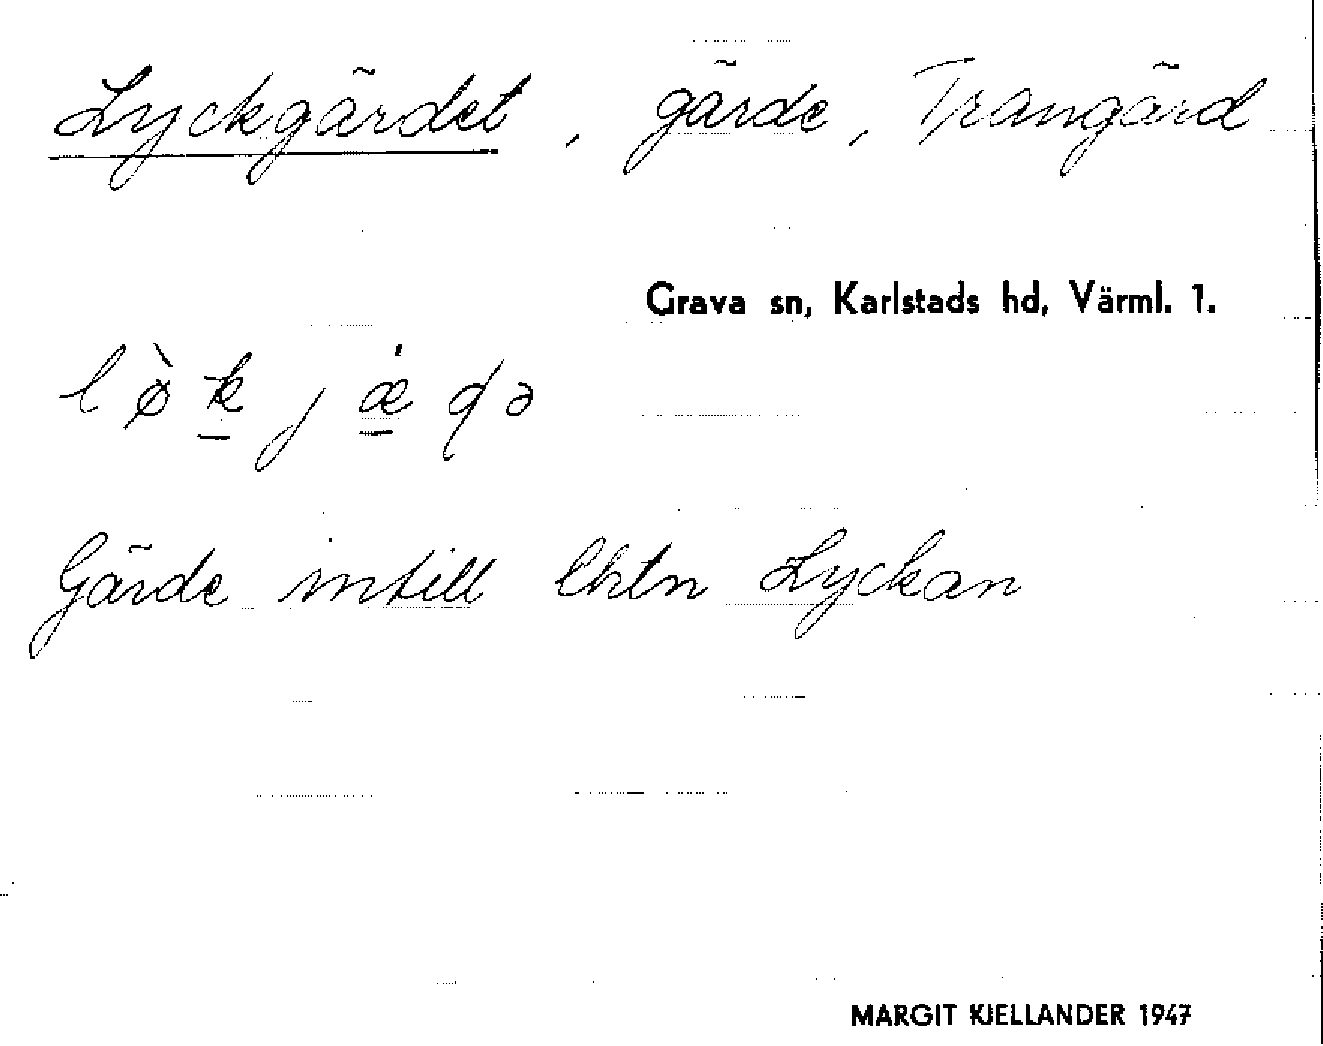 Lyckgärdet, gärde, Trangärd
Grava sn, Karlstads hd, Värml. 1.
lø̀kjæ̇ɖə
Gärde intill lhtn Lyckan
MARGIT KJELLANDER 1947